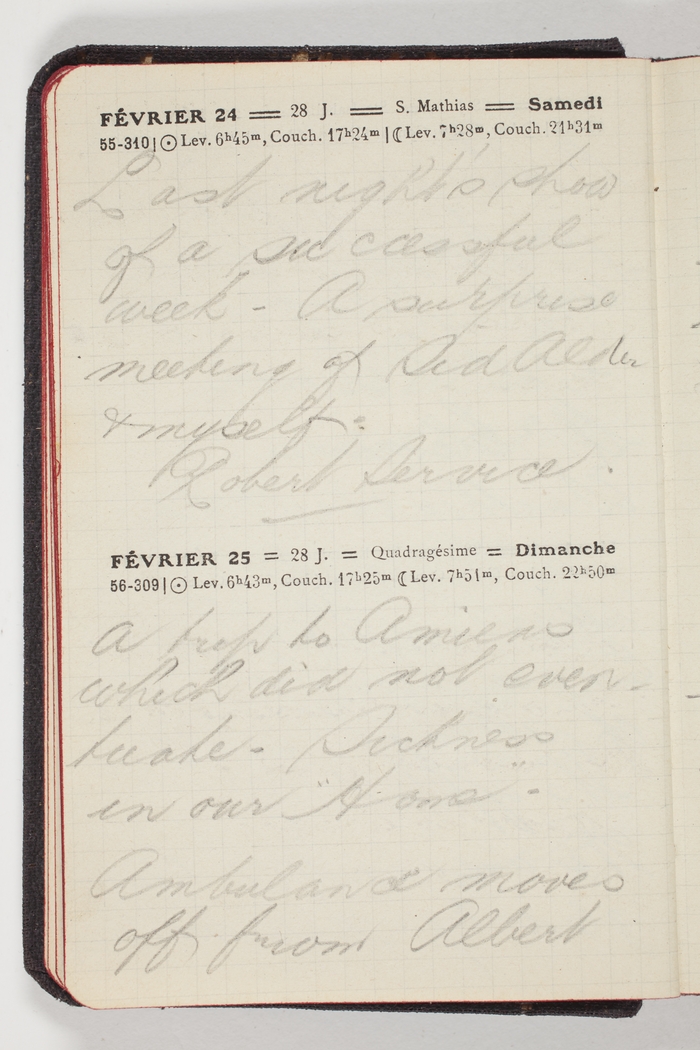 FÉVRIER 24 = 28 J. = S. Mathias = Samedi
55-310 | ☉ Lev. 6h45m, Couch. 17h24m | ☾ Lev. 7h28m, Couch. 21h31m
Last night's show
of a successful
week - A surprise
meeting of Sid Alder
& myself:
Robert Service.
FÉVRIER 25 = 28 J. = Quadragésime = Dimanche
56-309 | ☉ Lev. 6h43m, Couch. 17h25m ☾ Lev. 7h51m, Couch. 22h50m
A trip to Amiens
which did not even-
tuate. Sickness
in our "Home" -
Ambulance moves
off from Albert